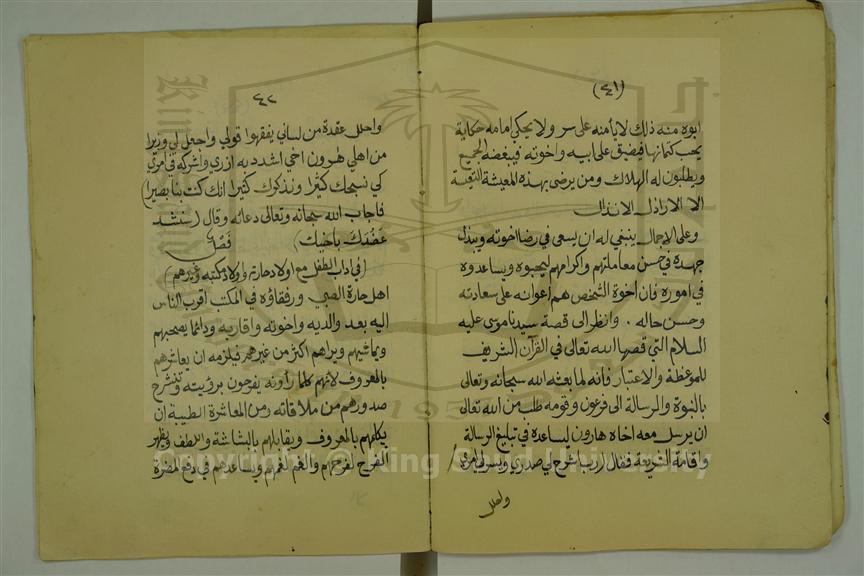 (٤١)
ابوه منه ذلك لا يأمنه على سر ولا يحكي امامه حكاية
يحب كتمانها فيضيق على ابيه واخوته فيبغضه الجميع
ويطلبون له الهلاك ومن يرضى بهذه المعيشة التعيسة
الا الاراذل الانذال
وعلى الاجمال ينبغي له ان يسعى في رضا اخوته ويبذل
جهده في حسن معاملتهم واكرامهم ليحبوه ويساعدوه
في اموره فان اخوة الشخص هم أعوانه على سعادته
وحسن حاله . وانظر الى قصة سيدنا موسى عليه
السلام التي قصها الله تعالى في القرآن الشريف
للموعظة والاعتبار فانه لما بعثه الله سبحانه وتعالى
بالنبوة والرسالة الى فرعون وقومه طلب من الله تعالى
ان يرسل معه اخاه هارون ليساعده في تبليغ الرسالة
واقامة الشريعة فقال (رب اشرح لي صدري ويسر لي امري
واحلل
٤٢
واحلل عقدة من لساني يفقهوا قولي واجعل لي وزيرا
من اهلي هرون اخي اشدد به ازري واشركه في امري
كي نسبحك كثيرا ونذكرك كثيرا انك كنت بنا بصيرا)
فاجاب الله سبحانه وتعالى دعائه وقال (سنشد
عضدك باخيك) فصل
(في اداب الطفل مع اولاد حارته واولاد مكتبه وغيرهم)
اهل حارة الصبي ورفقاؤه في المكتب اقرب الناس
اليه بعد والديه واخوته واقاربه ودائما يصحبهم
ويماشيهم ويراهم اكثر من غيرهم فيلزمه ان يعاشرهم
بالمعروف لانهم كلما رأونه يفرحون برؤيته وتنشرح
صدورهم من ملاقاته ومن المعاشرة الطيبة ان
يكلمهم بالمعروف ويقابلهم بالبشاشة واللطف ويظهر
الفرح لفرحهم والغم لغمهم ويساعدهم في دفع المضرة
Copyright © King Saud University